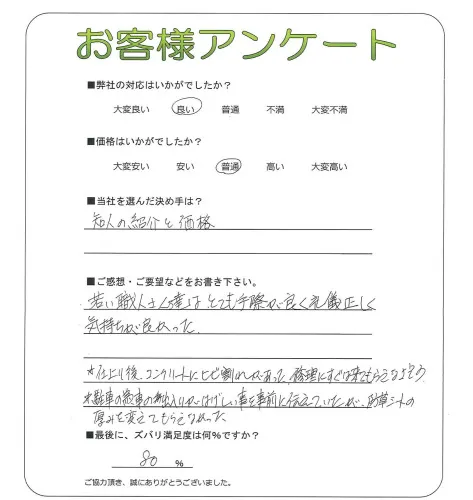 お客様アンケート
■弊社の対応はいかがでしたか？
大変良い 良い 普通 不満 大変不満
■価格はいかがでしたか？
大変安い 安い 普通 高い 大変高い
■当社を選んだ決め手は？
知人の紹介と価格
■ご感想・ご要望などをお書き下さい。
若い職人さん達はとても手際が良く礼儀正しく
気持ちが良かった。
*仕上り後、コンクリートにヒビ割れがあった、修理にすぐは来てもらえない
*駐車の出入りがはげしい事を事前に伝えていたが、防草シートの
厚みを変えてもらえなかった。
■最後に、ズバリ満足度は何％ですか？
80 %
ご協力頂き、誠にありがとうございました。